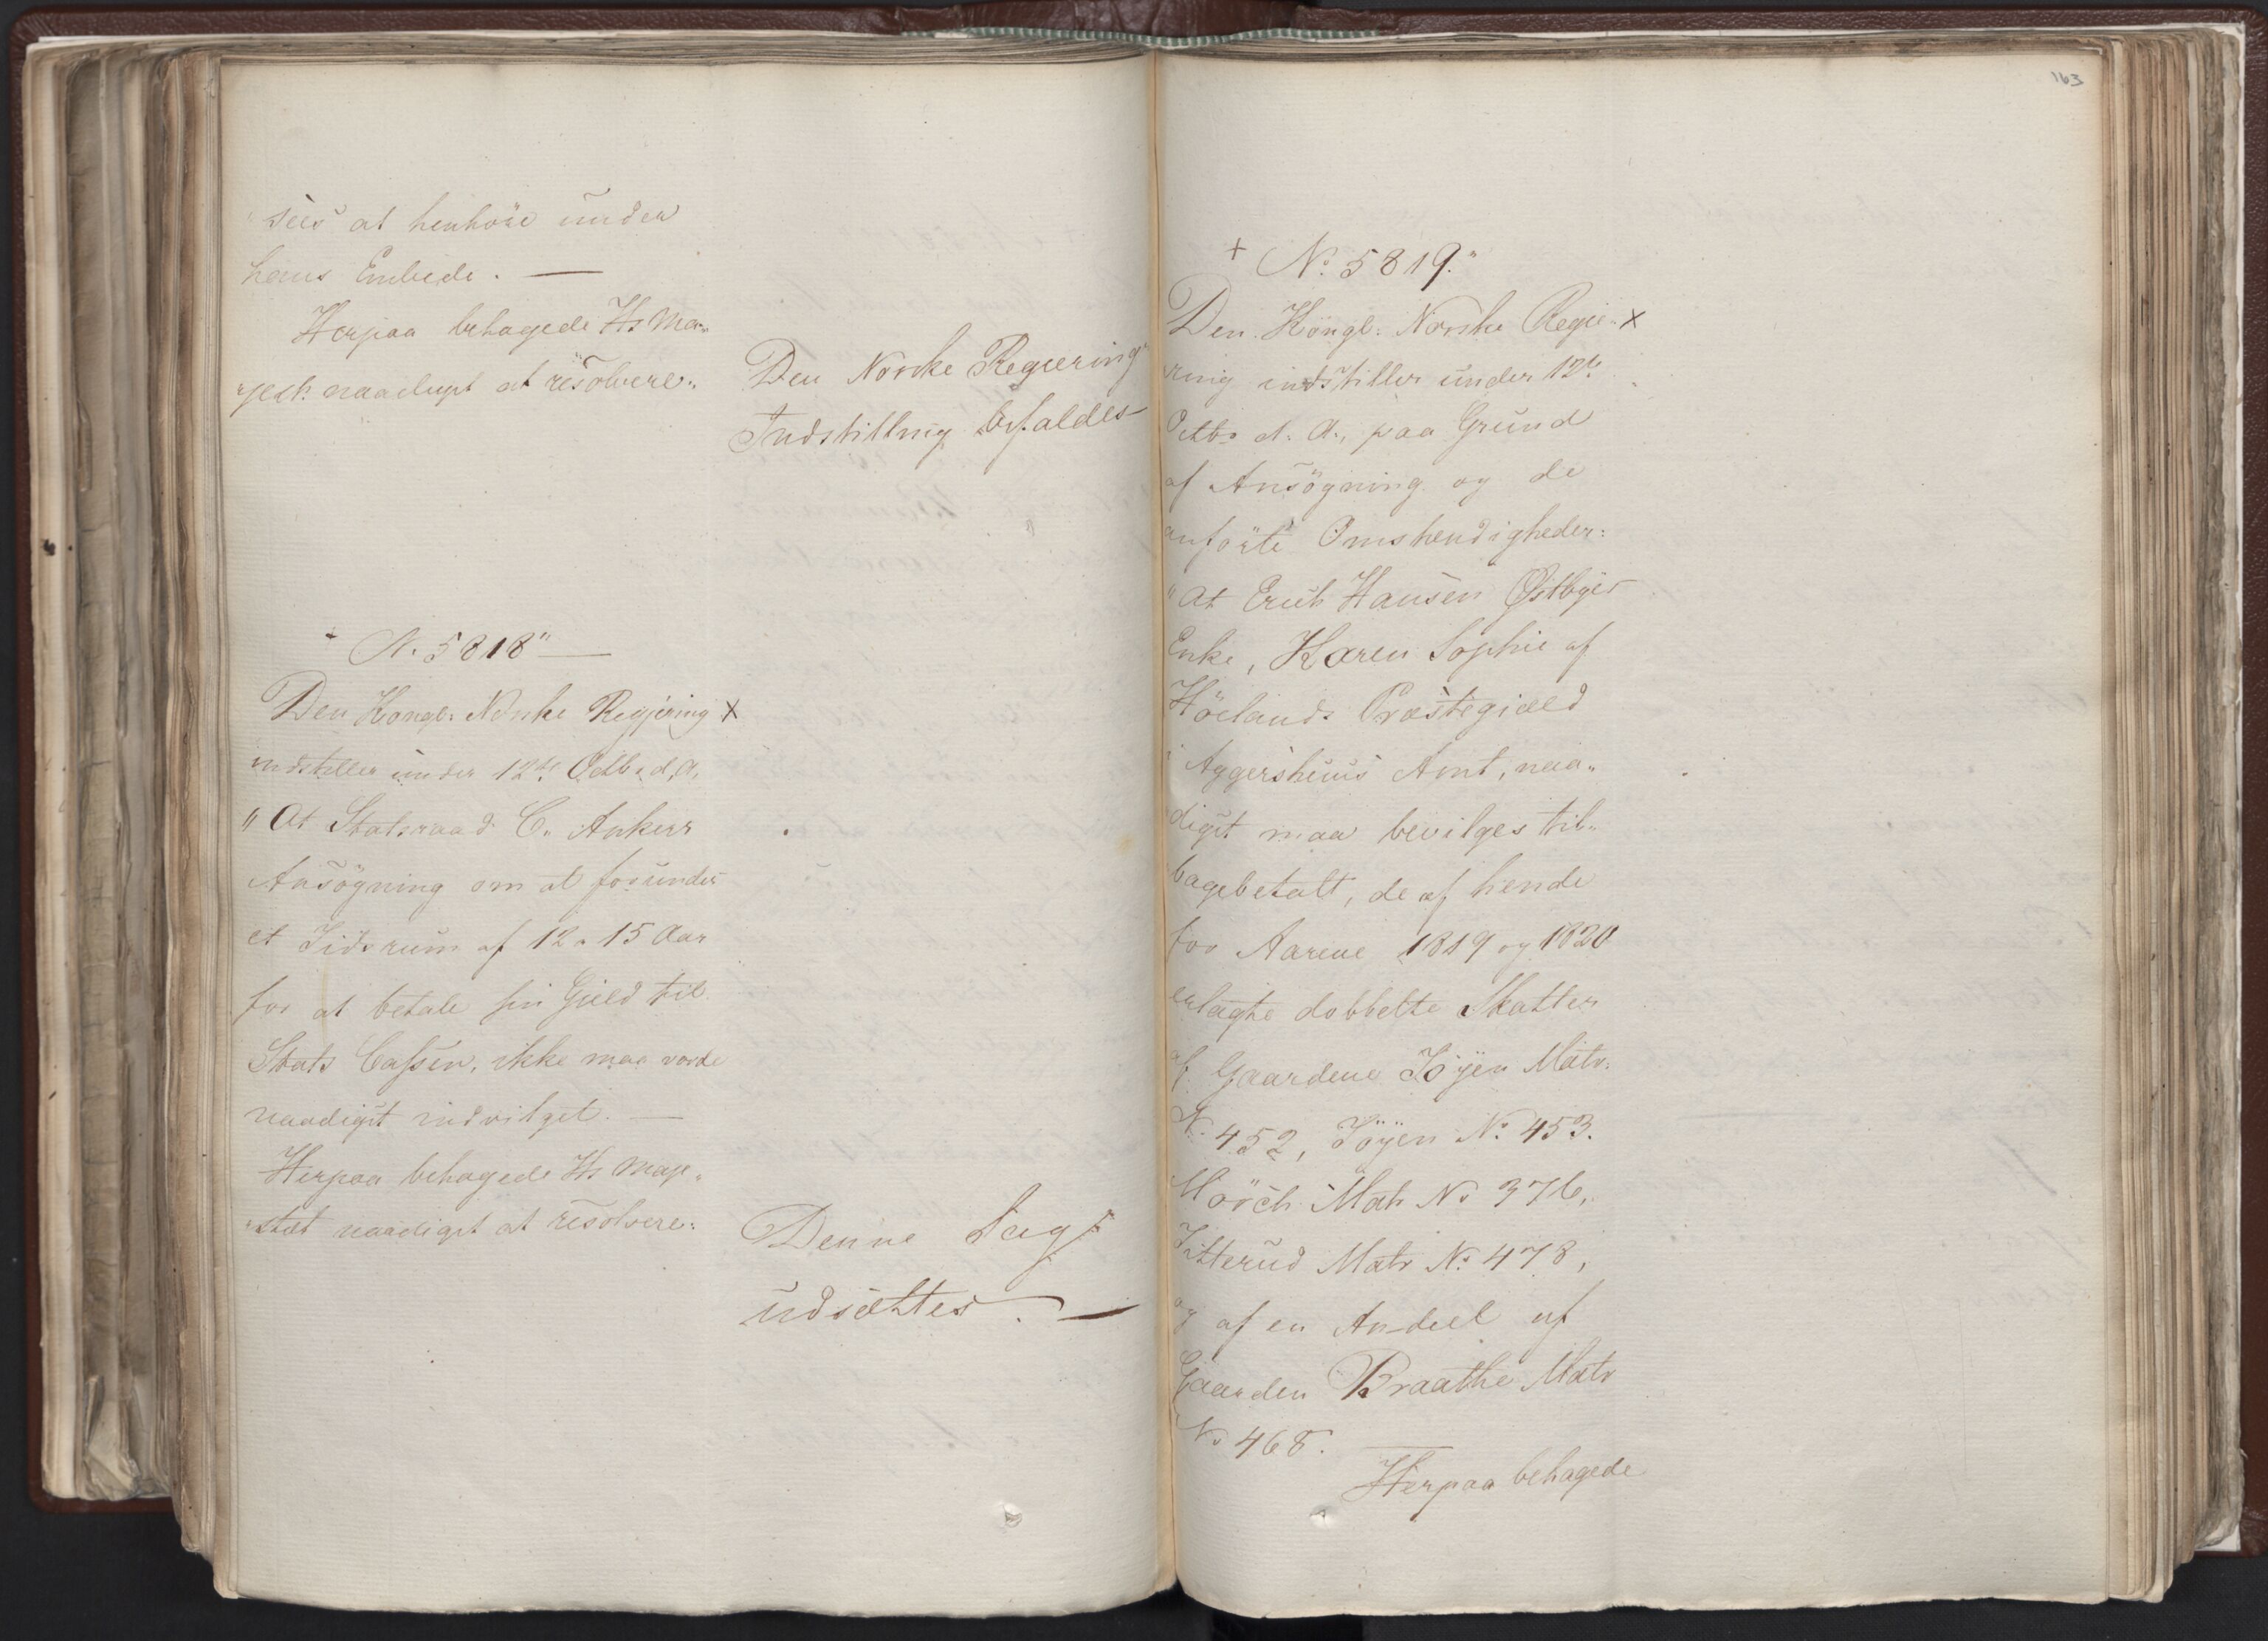 "sees at henhöre under
hans Embede. —
Herpaa behagede Hs Ma-
jest: naadigst at resolvere:
Den Norske Regierings
Indstilling bifaldes
N. 5818"
Den Kongl: Norske Regjering x
indstiller under 12te Octbr d. A.
"At Statsraad C. Ankers
Ansögning om at forundes
et Tidsrum af 12 a 15 Aar
for at betale sin Gield til
Stats Cassen, ikke maa vorde
naadigst indvilget. —
Herpaa behagede Hs Maje-
stæt naadigst at resolvere:
Denne Sag
udsættes. —
163
+ No. 5819."
Den Köngl: Norske Regie- x
ring indstiller under 12te
Octbr d. A., paa Grund
af Ansögning og de
anförte Omstendigheder:
"At Erich Hansen Østbyes
Enke, Karen Sophie af
Hölands Præstegield
i Aggershuus Amt, naa-
digst maa bevilges til-
bagebetalt, de af hende
for Aarene 1819 og 1820
erlagte dobbelte Skatter
af Gaardene Töyen Matr.
N. 452, Töyen No. 453.
Möösh Matr No 376,
Itterud Matr No. 478,
og af en Andeel af
Gaarden Braathe Matr
No 468. —
Herpaa behagede